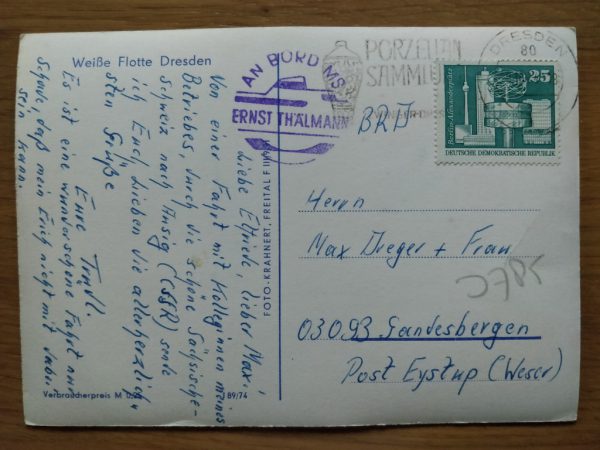 Weiße Flotte Dresden
AN BORD MS
ERNST THÄLMANN
PORZELLAN
SAMMLU
DRESDEN
80
25
Berlin, Alexanderplatz
DEUTSCHE DEMOKRATISCHE REPUBLIK
BRD
Liebe Elfriede, lieber Max,
Von einer Fahrt mit Kolleginnen meines
Betriebes, durch die schöne Sächsische-
Schweiz nach Aussig (CSSR) sende
ich Euch Lieben die allerherzlich,
sten Grüße
Eure Trudl.
Es ist eine wunderschöne Fahrt nur
schade, daß mein Erich nicht mit dabei
sein kann.
Herrn
Max Dreger + Frau
03093 Gandesbergen
Post Eystrup (Weser)
FOTO-KRAHNERT, FREITAL F
Verbraucherpreis M
89/74